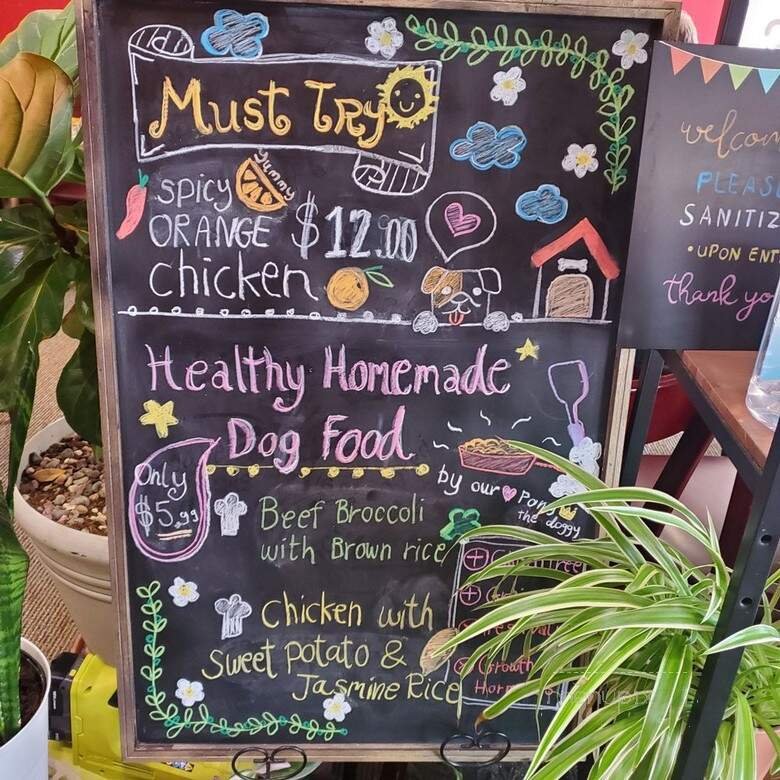 Must Try
Yummy
Spicy
Orange $12.00
chicken
Healthy Homemade
Dog Food
Only
$5.99
by our
the doggy
Beef Broccoli
with Brown rice
Chicken with
Sweet potato &
Jasmine Rice
Growth
welcom
PLEAS
SANITIZ
•UPON ENT
thank yo